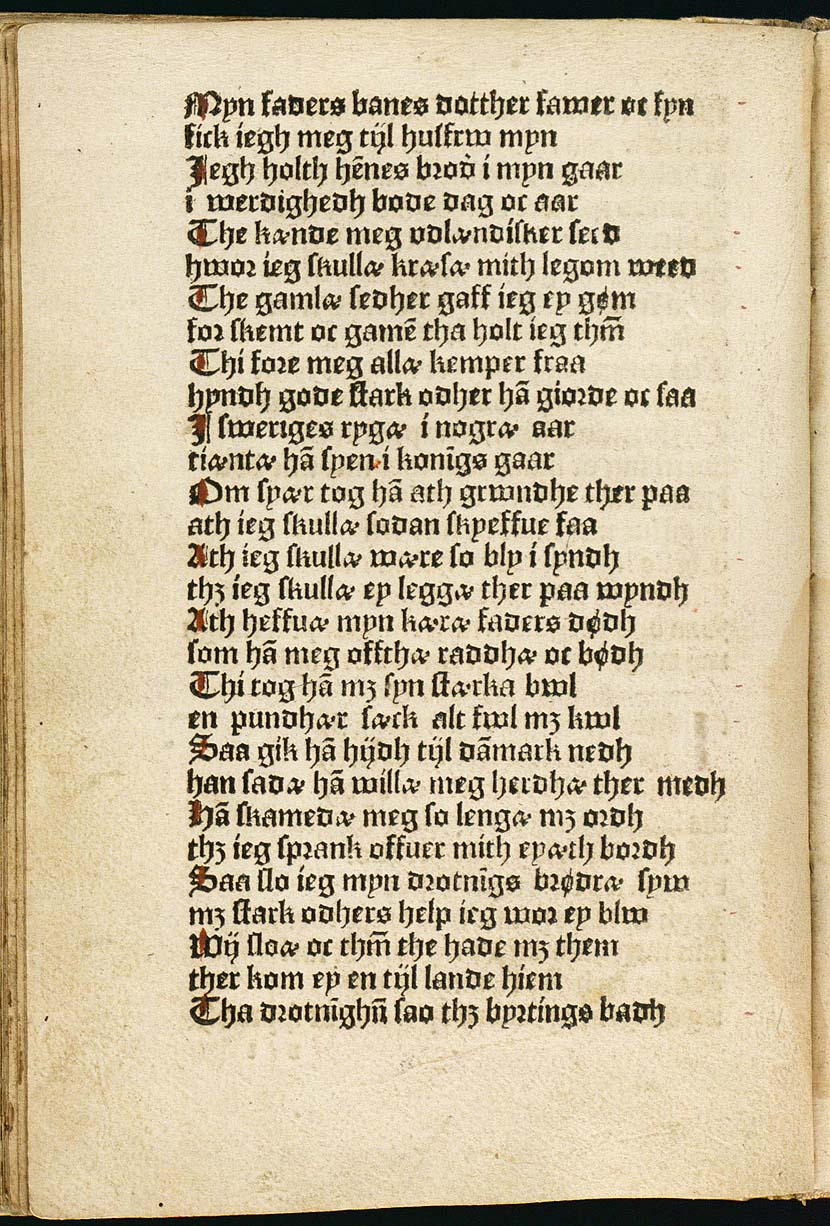 Myn faders banes dotther fawer oc fyn
fick iegh meg tijl husfrw myn
Jegh holth hēnes brodꝛ i myn gaar
i werdighedh bode dag oc aar
The kænde meg vdlændisker seed
hwor ieg skullæ kræsæ mith legom weed
The gamlæ sedher gaff ieg ey gøm
for skemt oc gamē tha holt ieg thm̄
Thi fore meg allæ kemper fraa
hyndh gode stark odher hā giorde oc saa
J sweriges rygæ i nogræ aar
tiæntæ hā syen i konīgs gaar
Om syær tog hā ath grwndhe ther paa
ath ieg skullæ sodan skyeffue faa
Ath ieg skullæ wære so bly i syndh
thꝫ ieg skullæ ey leggæ ther paa wyndh
Ath heffuæ myn kæræ faders dødh
som hā meg offthæ raddhæ oc bødh
Thi tog hā mꝫ syn stærka bwl
en pundhær sæck alt fwl mꝫ kwl
Saa gik hā hijdh tijl dāmark nedh
han sadæ hā willæ meg herdhæ ther medh
Hā skamedæ meg so lengæ mꝫ ordh
thꝫ ieg sprank offuer mith eyæth bordh
Saa slo ieg myn drotnīgs brødræ syw
mꝫ stark odhers help ieg wor ey blw
Wij sloæ oc thm̄ the hade mꝫ them
ther kom ey en tijl lande hiem
Tha drotnīghn̄ sao thꝫ byrtings badh